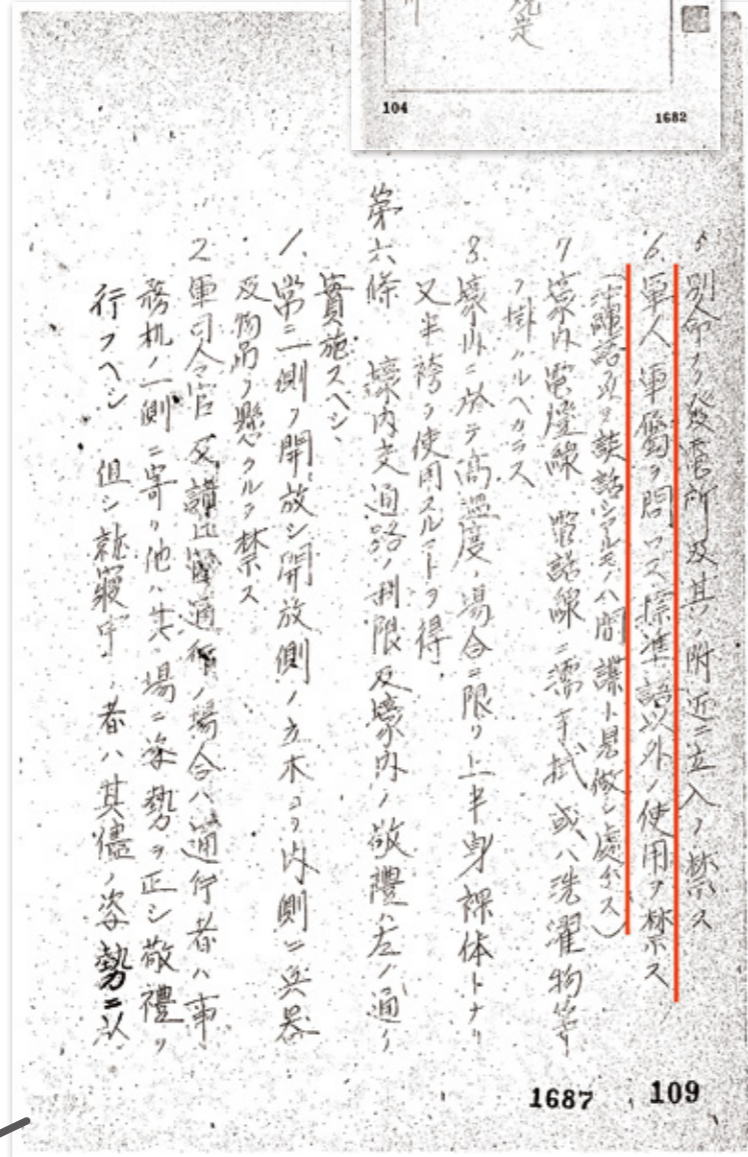 規定
104
1682
5 別命ナク發電所及其ノ附近ニ立入ヲ禁ス
6、軍人軍屬ヲ問ハス標準語以外ノ使用ヲ禁ス
(沖繩語ヲ以テ談話シアルモノハ間諜ト見做シ處分ス)
7 壕内電燈線、電話線ニ濡手拭或ハ洗濯物等
ヲ掛クルヘカラス
8、壕内ニ於テ高温度ノ場合ニ限リ上半身裸体トナリ
又半袴ヲ使用スルコトヲ得
第六條 壕内交通路ノ制限及壕内ノ敬禮ハ左ノ通リ
實施スヘシ、
1、常ニ一側ヲ開放シ開放側ノ立木ヨリ内側ニ兵器
及物品ヲ懸クルヲ禁ス
2 軍司令官及 通行ノ場合ハ通行者ハ事
務机ノ一側ニ寄リ他ハ其ノ場ニ姿勢ヲ正シ敬禮ヲ
行フヘシ 但シ就寢中ノ者ハ其儘ノ姿勢ニ以
1687
109